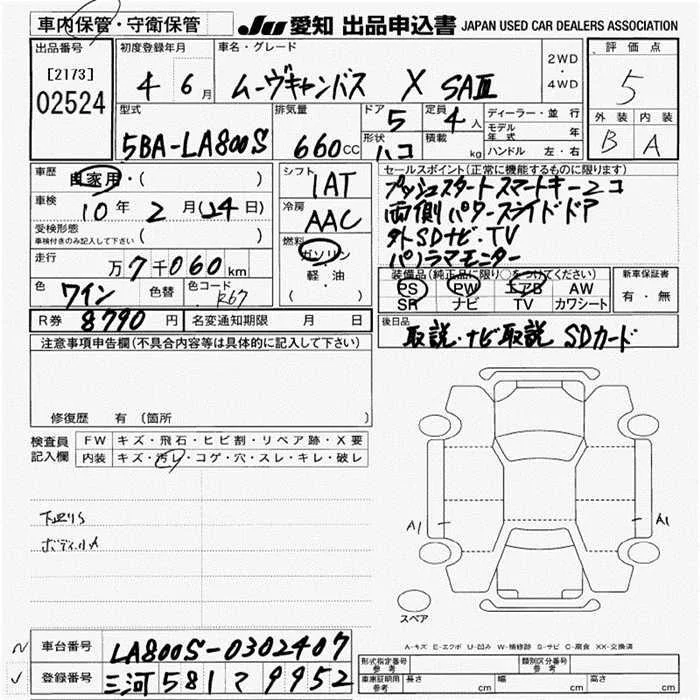 車内保管・守衛保管
JU 愛知 出品申込書 JAPAN USED CAR DEALERS ASSOCIATION
出品番号
[2173]
02524
初度登録年月
4 6月
車名・グレード
ムーヴキャンバス X SAⅢ
2WD
・
4WD
評価点
5
外装 内装
B A
型式
5BA-LA800S
排気量
660cc
ドア
5
形状
ハコ
定員
4人
積載
kg
ディーラー・並行
モデル年式 年
ハンドル 左・右
車歴
自家用・( )
車検
10年2月(24日)
受検形態
車検付きのみ記入して下さい ( )
走行
万7千060km
色
ワイン
色替
色コード
R67
R券 8790円
名変通知期限 月 日
シフト
1AT
冷房
AAC
燃料
ガソリン
軽・油
( )
セールスポイント(正常に機能するものに限ります)
プッシュスタート スマートキー2コ
両側パワースライドドア
外SDナビ・TV
パノラマモニター
装備品(純正品に限り○をつけてください)
PS PW エアB AW
SR ナビ TV カワシート
新車保証書
有・無
後日品
取説・ナビ取説 SDカード
注意事項申告欄(不具合内容等は具体的に記入して下さい)
修復歴 有 (箇所 )
検査員
記入欄
FW キズ・飛石・ヒビ割・リペア跡・X要
内装 キズ・汚レ・コゲ・穴・スレ・キレ・破レ
下廻りS
ボディ小A
A1
A1
スペア
A-キズ E-エクボ U-凹み W-補修跡 S-サビ C-腐食 XX-交換済
車台番号 LA800S-0302407
登録番号 三河 581 マ 9952
形式指定番号
参考
類別区分番号
参考
車庫証明用
参考
長さ cm
幅 cm
高さ cm